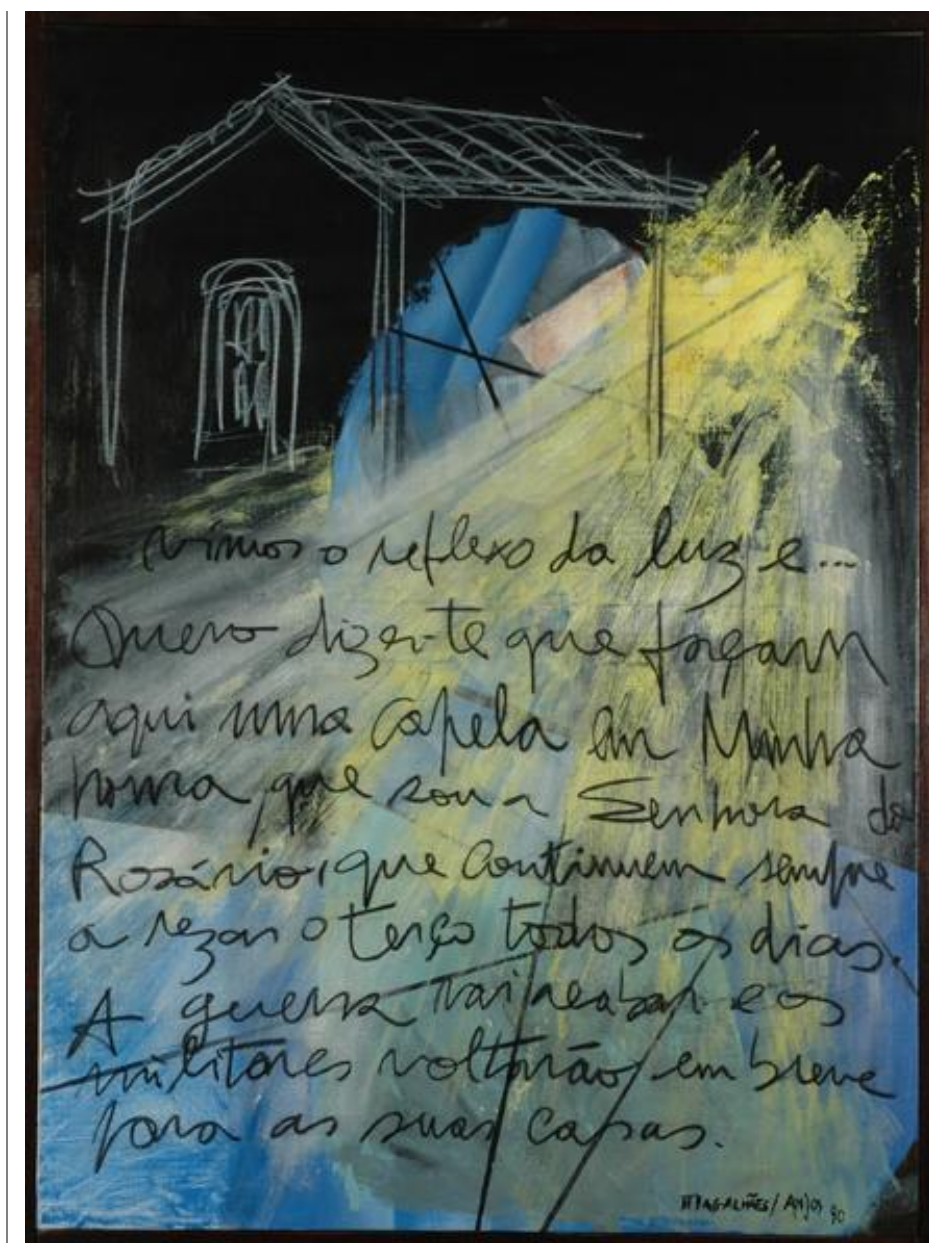 ...vimos o reflexo da luz e...
Quero dizer-te que façam
aqui uma capela em Minha
honra, que sou a Senhora do
Rosário, que continuem sempre
a rezar o terço todos os dias.
A guerra vai acabar e os
militares voltarão em breve
para as suas casas.
MAGALHÃES/ANJOS 90